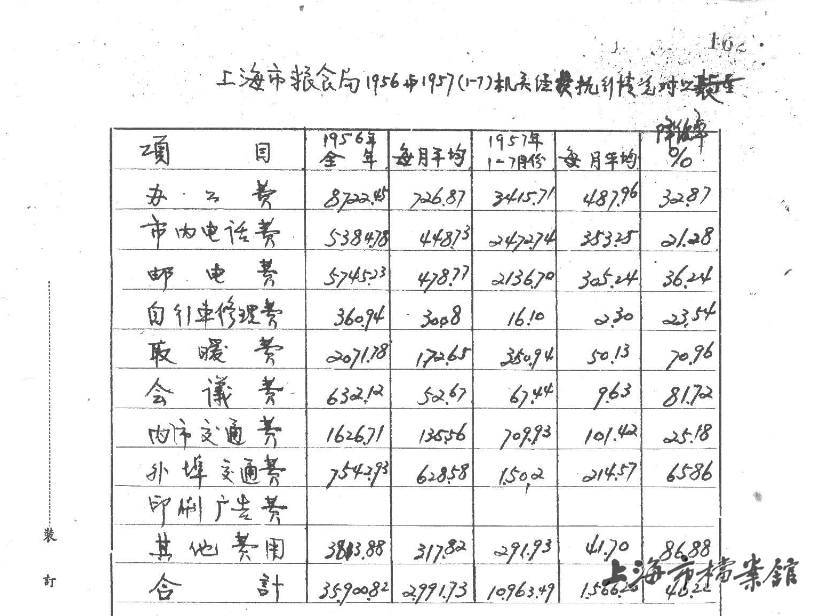 162
上海市粮食局1956与1957(1-7)机关经费执行情况对比表
项目 1956年全年 每月平均 1957年1-7月份 每月平均 降低率%
办公费 8722.45 726.87 3415.71 487.96 32.87
市内电话费 5384.78 448.73 2472.74 353.25 21.28
邮电费 5745.23 478.77 2136.70 305.24 36.24
自行车修理费 360.94 30.08 16.10 2.30 23.54
取暖费 2071.78 172.65 350.94 50.13 70.96
会议费 632.12 52.67 67.44 9.63 81.72
内市交通费 1626.71 135.56 709.93 101.42 25.18
外埠交通费 7542.93 628.58 150.2 214.57 65.86
印刷广告费
其他费用 3813.88 317.82 291.93 41.70 86.88
合计 35900.82 2,991.73 10963.49
上海市档案馆
装
订